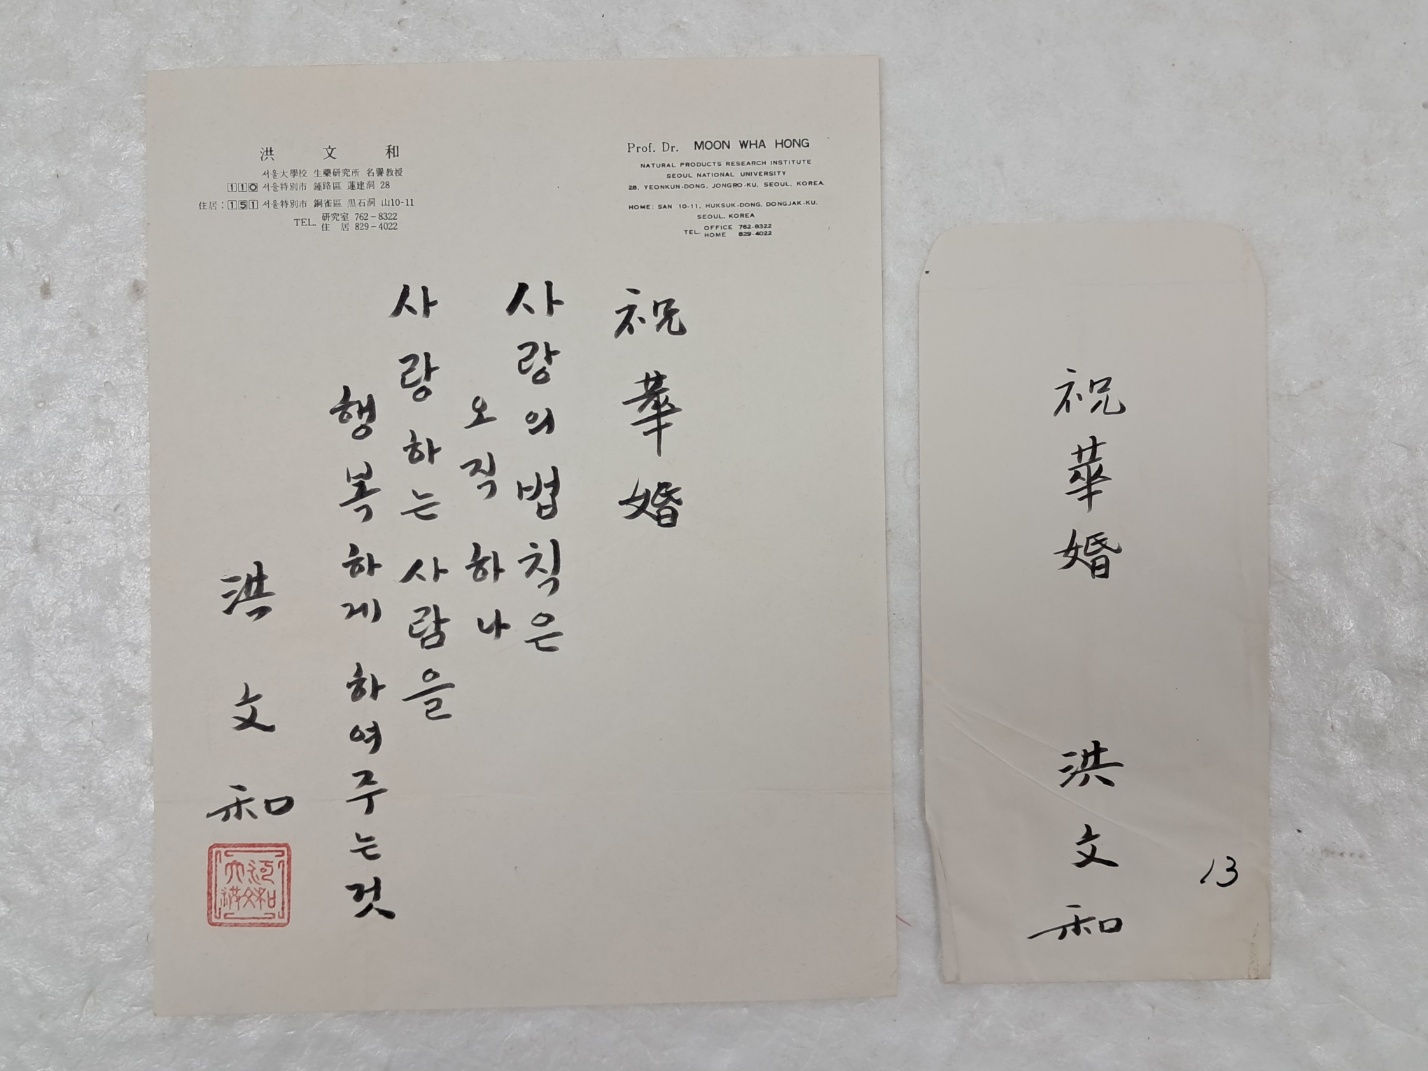 洪 文 和
서울大學校 生藥研究所 名譽敎授
110 서울特別市 鍾路區 蓮建洞 28
住居 : 151 서울特別市 銅雀區 黑石洞 山10-11
TEL. 研究室 762-8322
住 居 829-4022
Prof. Dr. MOON WHA HONG
NATURAL PRODUCTS RESEARCH INSTITUTE
SEOUL NATIONAL UNIVERSITY
28, YEONKUN-DONG, JONGRO-KU, SEOUL, KOREA
HOME: SAN 10-11, HUKSUK-DONG, DONGJAK-KU,
SEOUL, KOREA
TEL. OFFICE 762-8322
HOME 829-4022
祝華婚
사랑의 법칙은
오직 하나
사랑하는 사람을
행복하게 하여주는것
洪文和
祝華婚
洪文和
13